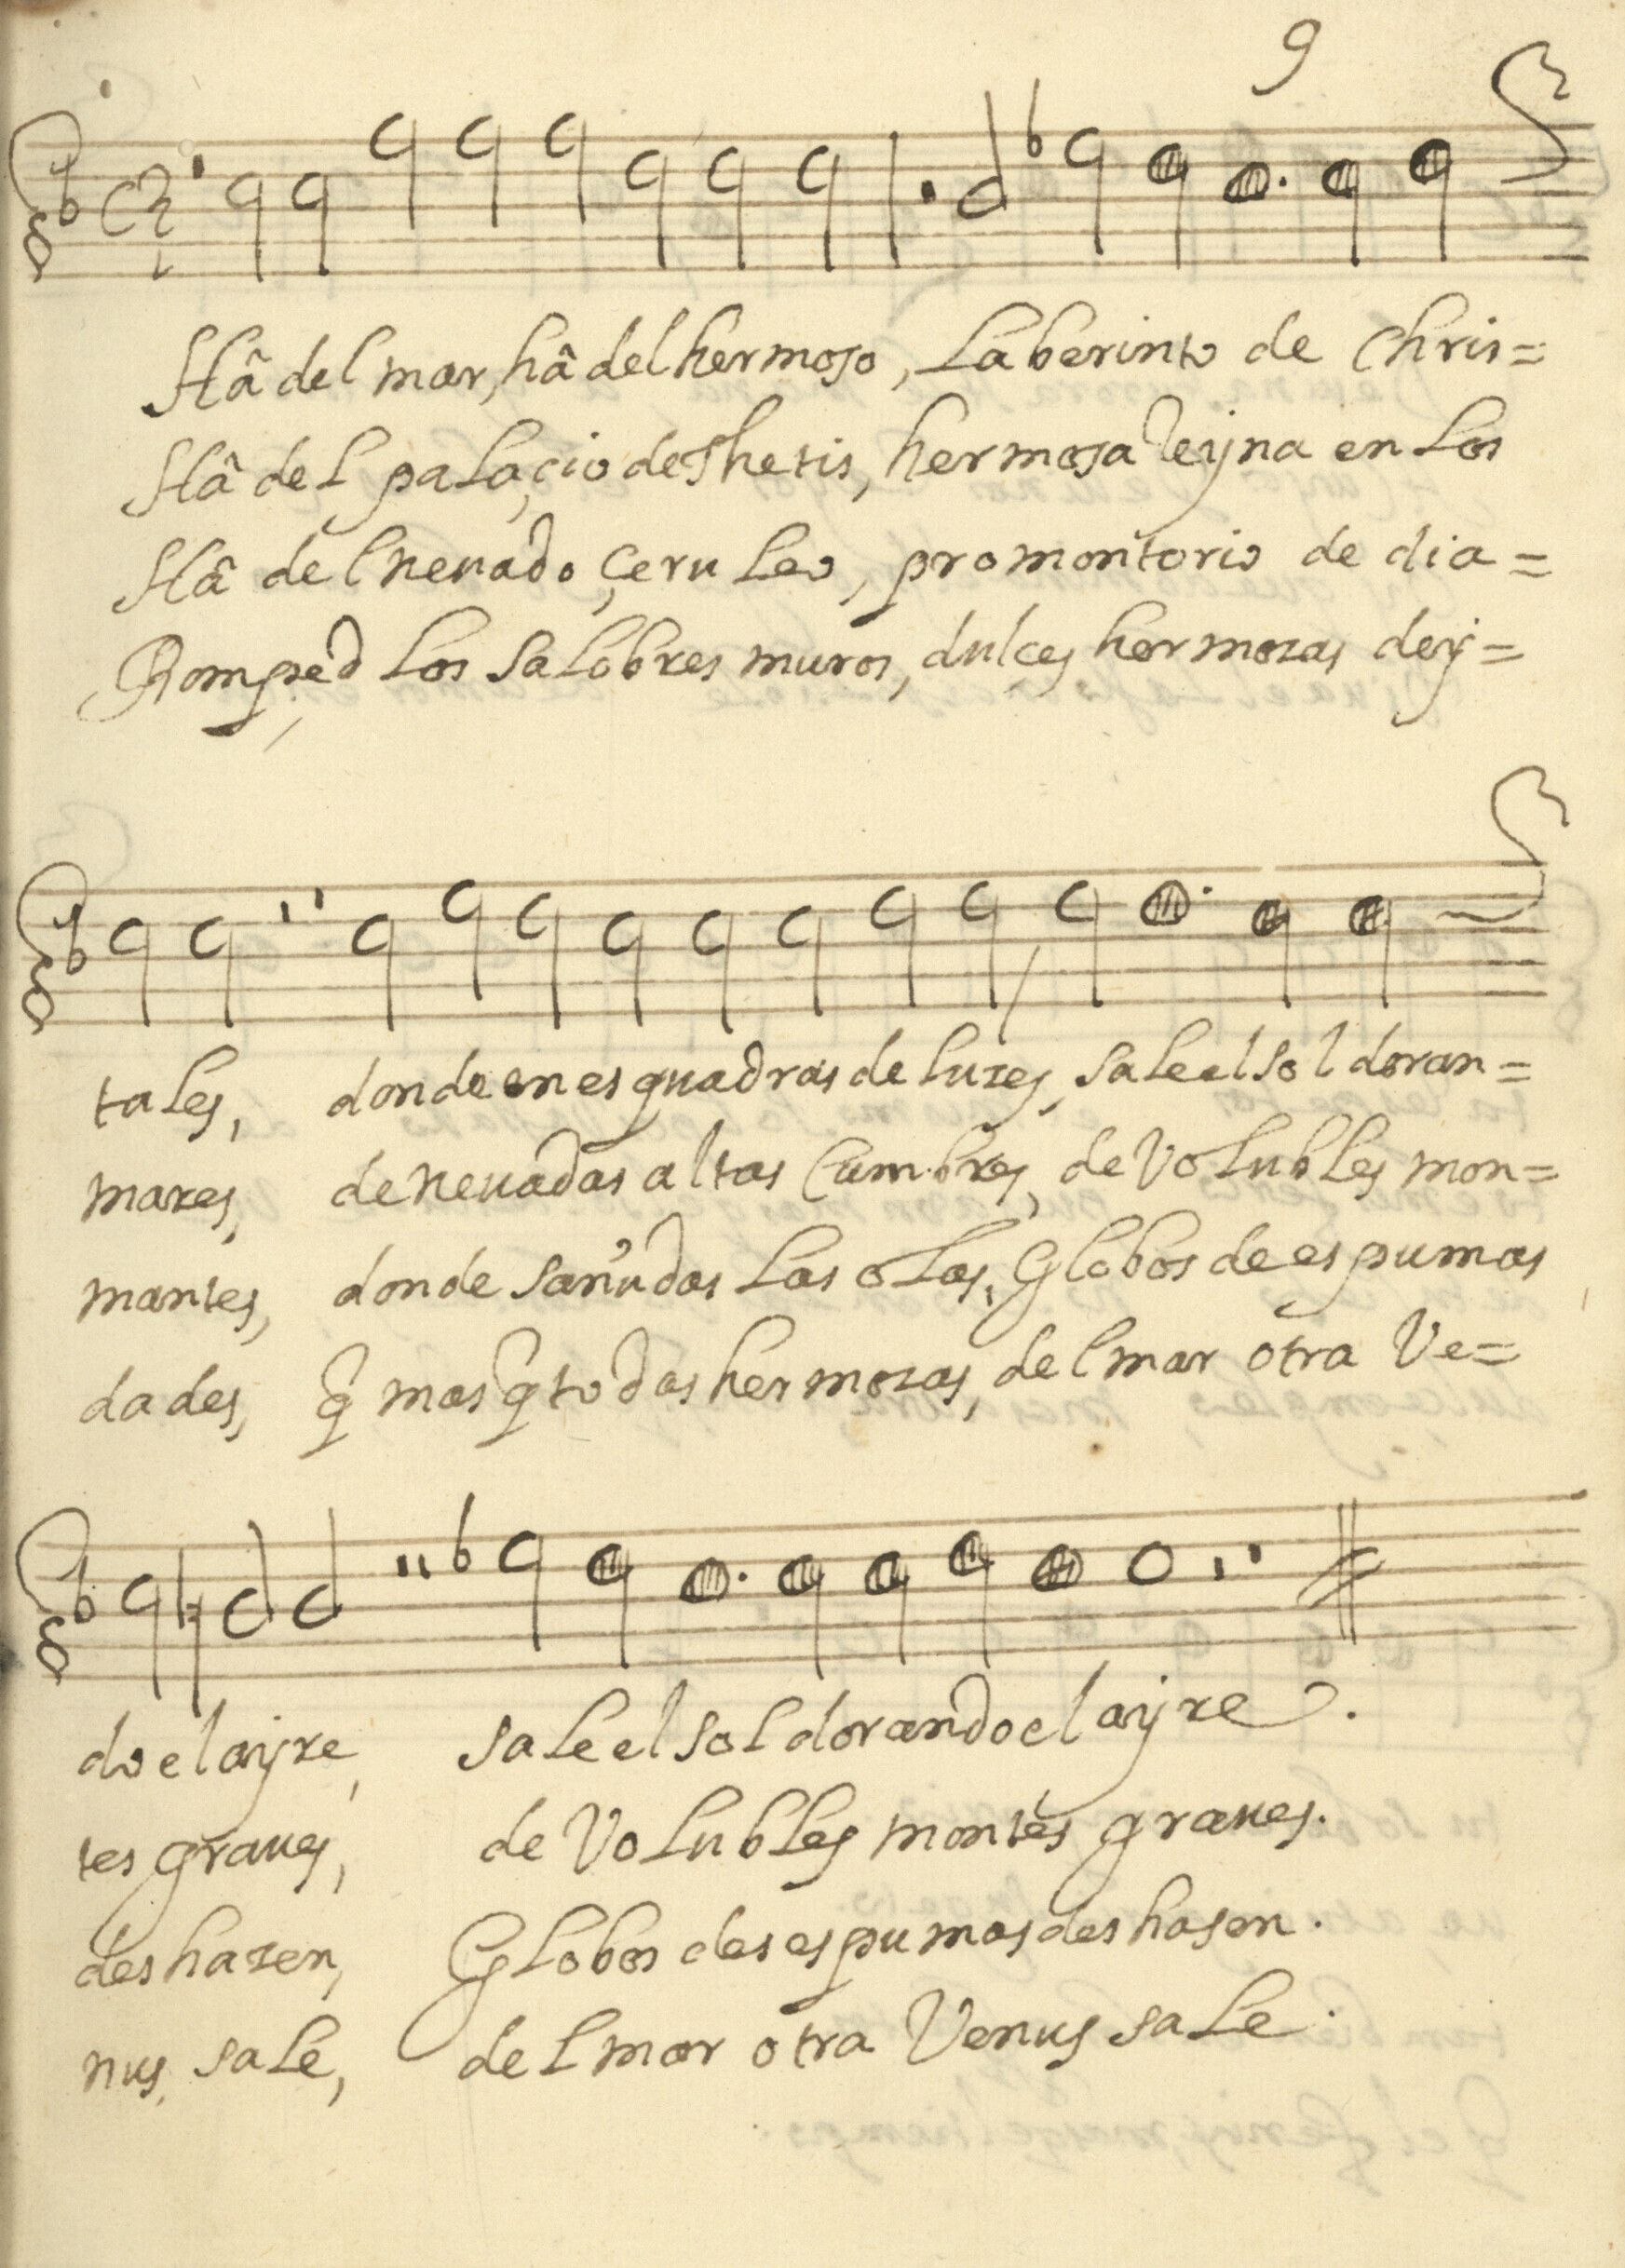 9
Hâ del mar, hâ del hermoso, Laberinto de Chris=
Hâ del palaçio de Thetis, hermosa Reyna en los
Hâ del neuado çeruleo, promontorio de dia=
Romped los salobres muros, dulçes hermozas dey=
tales, donde en esquadras de luzes, sale el sol doran=
mares, de neuadas altas Cumbres, de Volubles mon=
mantes, donde sañudas las olas, Globos de espumas
dades, q̃ mas q̃ todas hermozas, del mar otra Ve=
do el ayre, sale el sol dorando el ayre.
tes graues, de Volubles montes graues.
deshazen, Globos des espumas deshasen.
nus sale, del mar otra Venus sale.